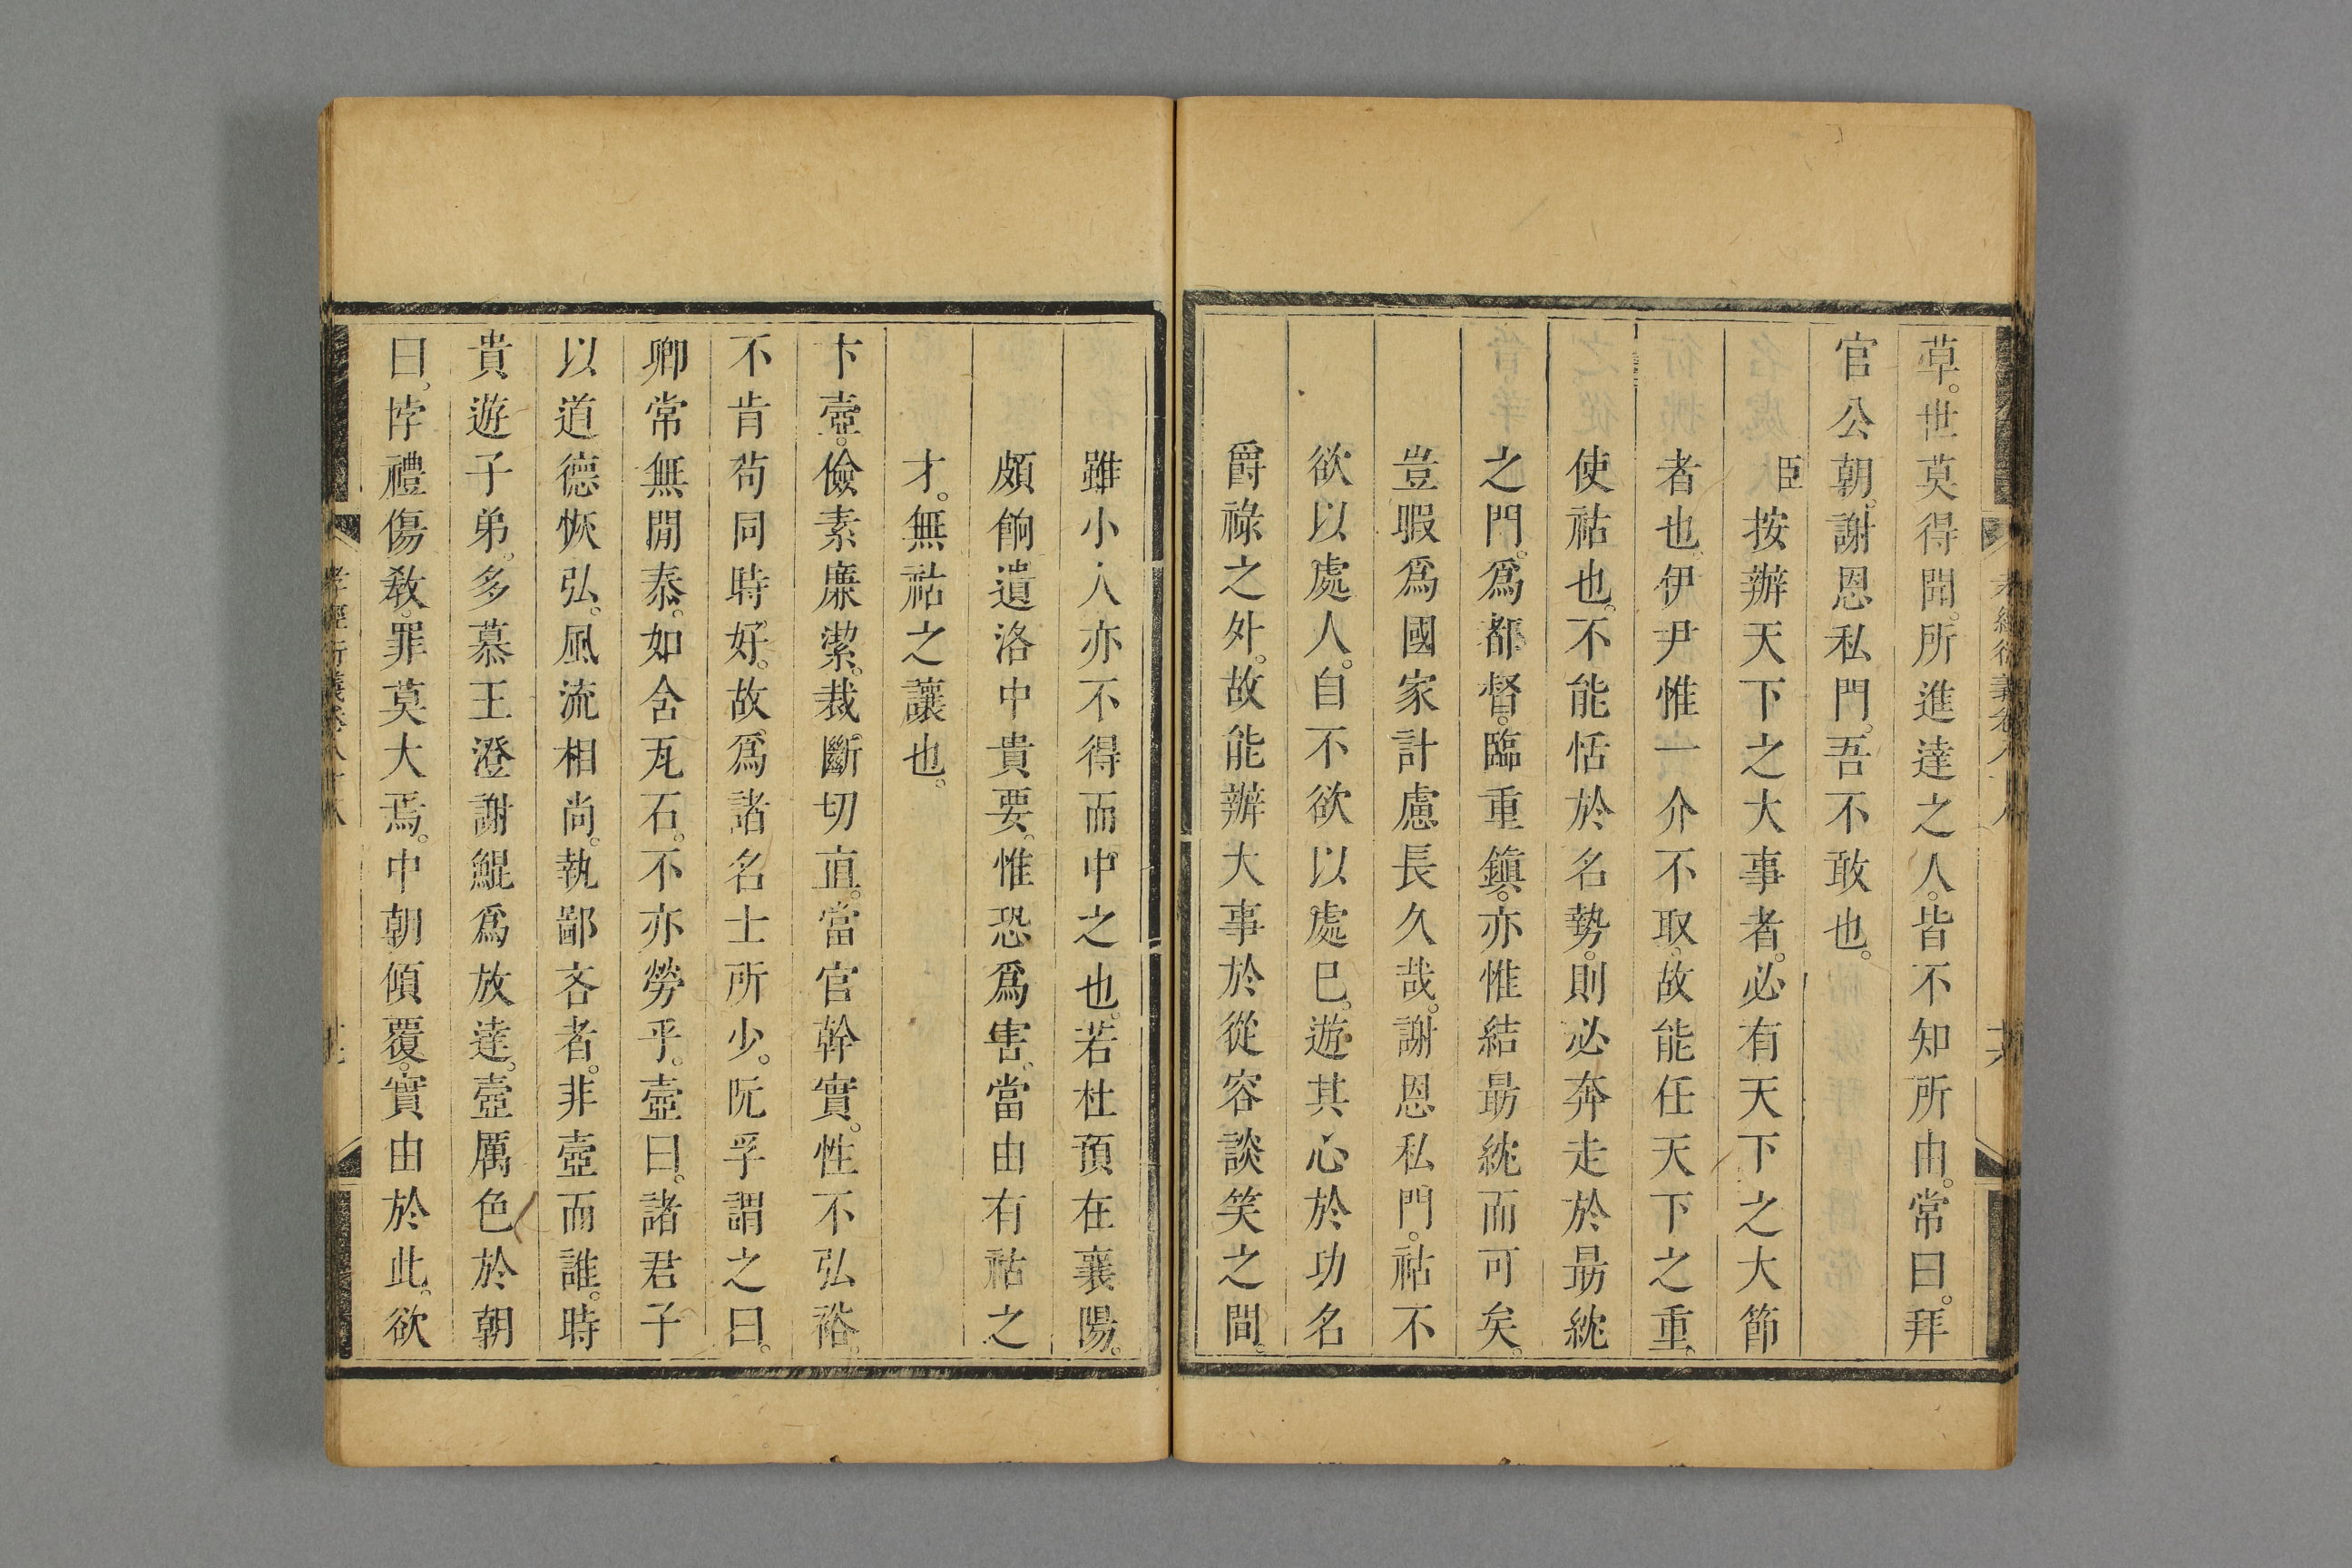 草世莫得聞所進達之人皆不知所由常曰拜
官公朝謝恩私門吾不敢也
臣按辦天下之大事者必有天下之大節
者也伊尹惟一介不取故能任天下之重
使祜也不能恬於名勢則必奔走於勗紞
之門爲都督臨重鎮亦惟結勗紞而可矣
豈暇爲國家計慮長久哉謝恩私門祜不
欲以處人自不欲以處巳遊其心於功名
爵祿之外故能辦大事於從容談笑之間
雖小人亦不得而中之也若杜預在襄陽
頗餉遺洛中貴要惟恐爲害當由有祜之
才無祜之讓也
卞壺儉素廉潔裁斷切直當官幹實性不弘裕
不肯苟同時好故爲諸名士所少阮孚謂之曰
卿常無閒泰如含瓦石不亦勞乎壺曰諸君子
以道德恢弘風流相尚執鄙吝者非壺而誰時
貴遊子弟多慕王澄謝鯤爲放達壺厲色於朝
曰悖禮傷敎罪莫大焉中朝傾覆實由於此欲